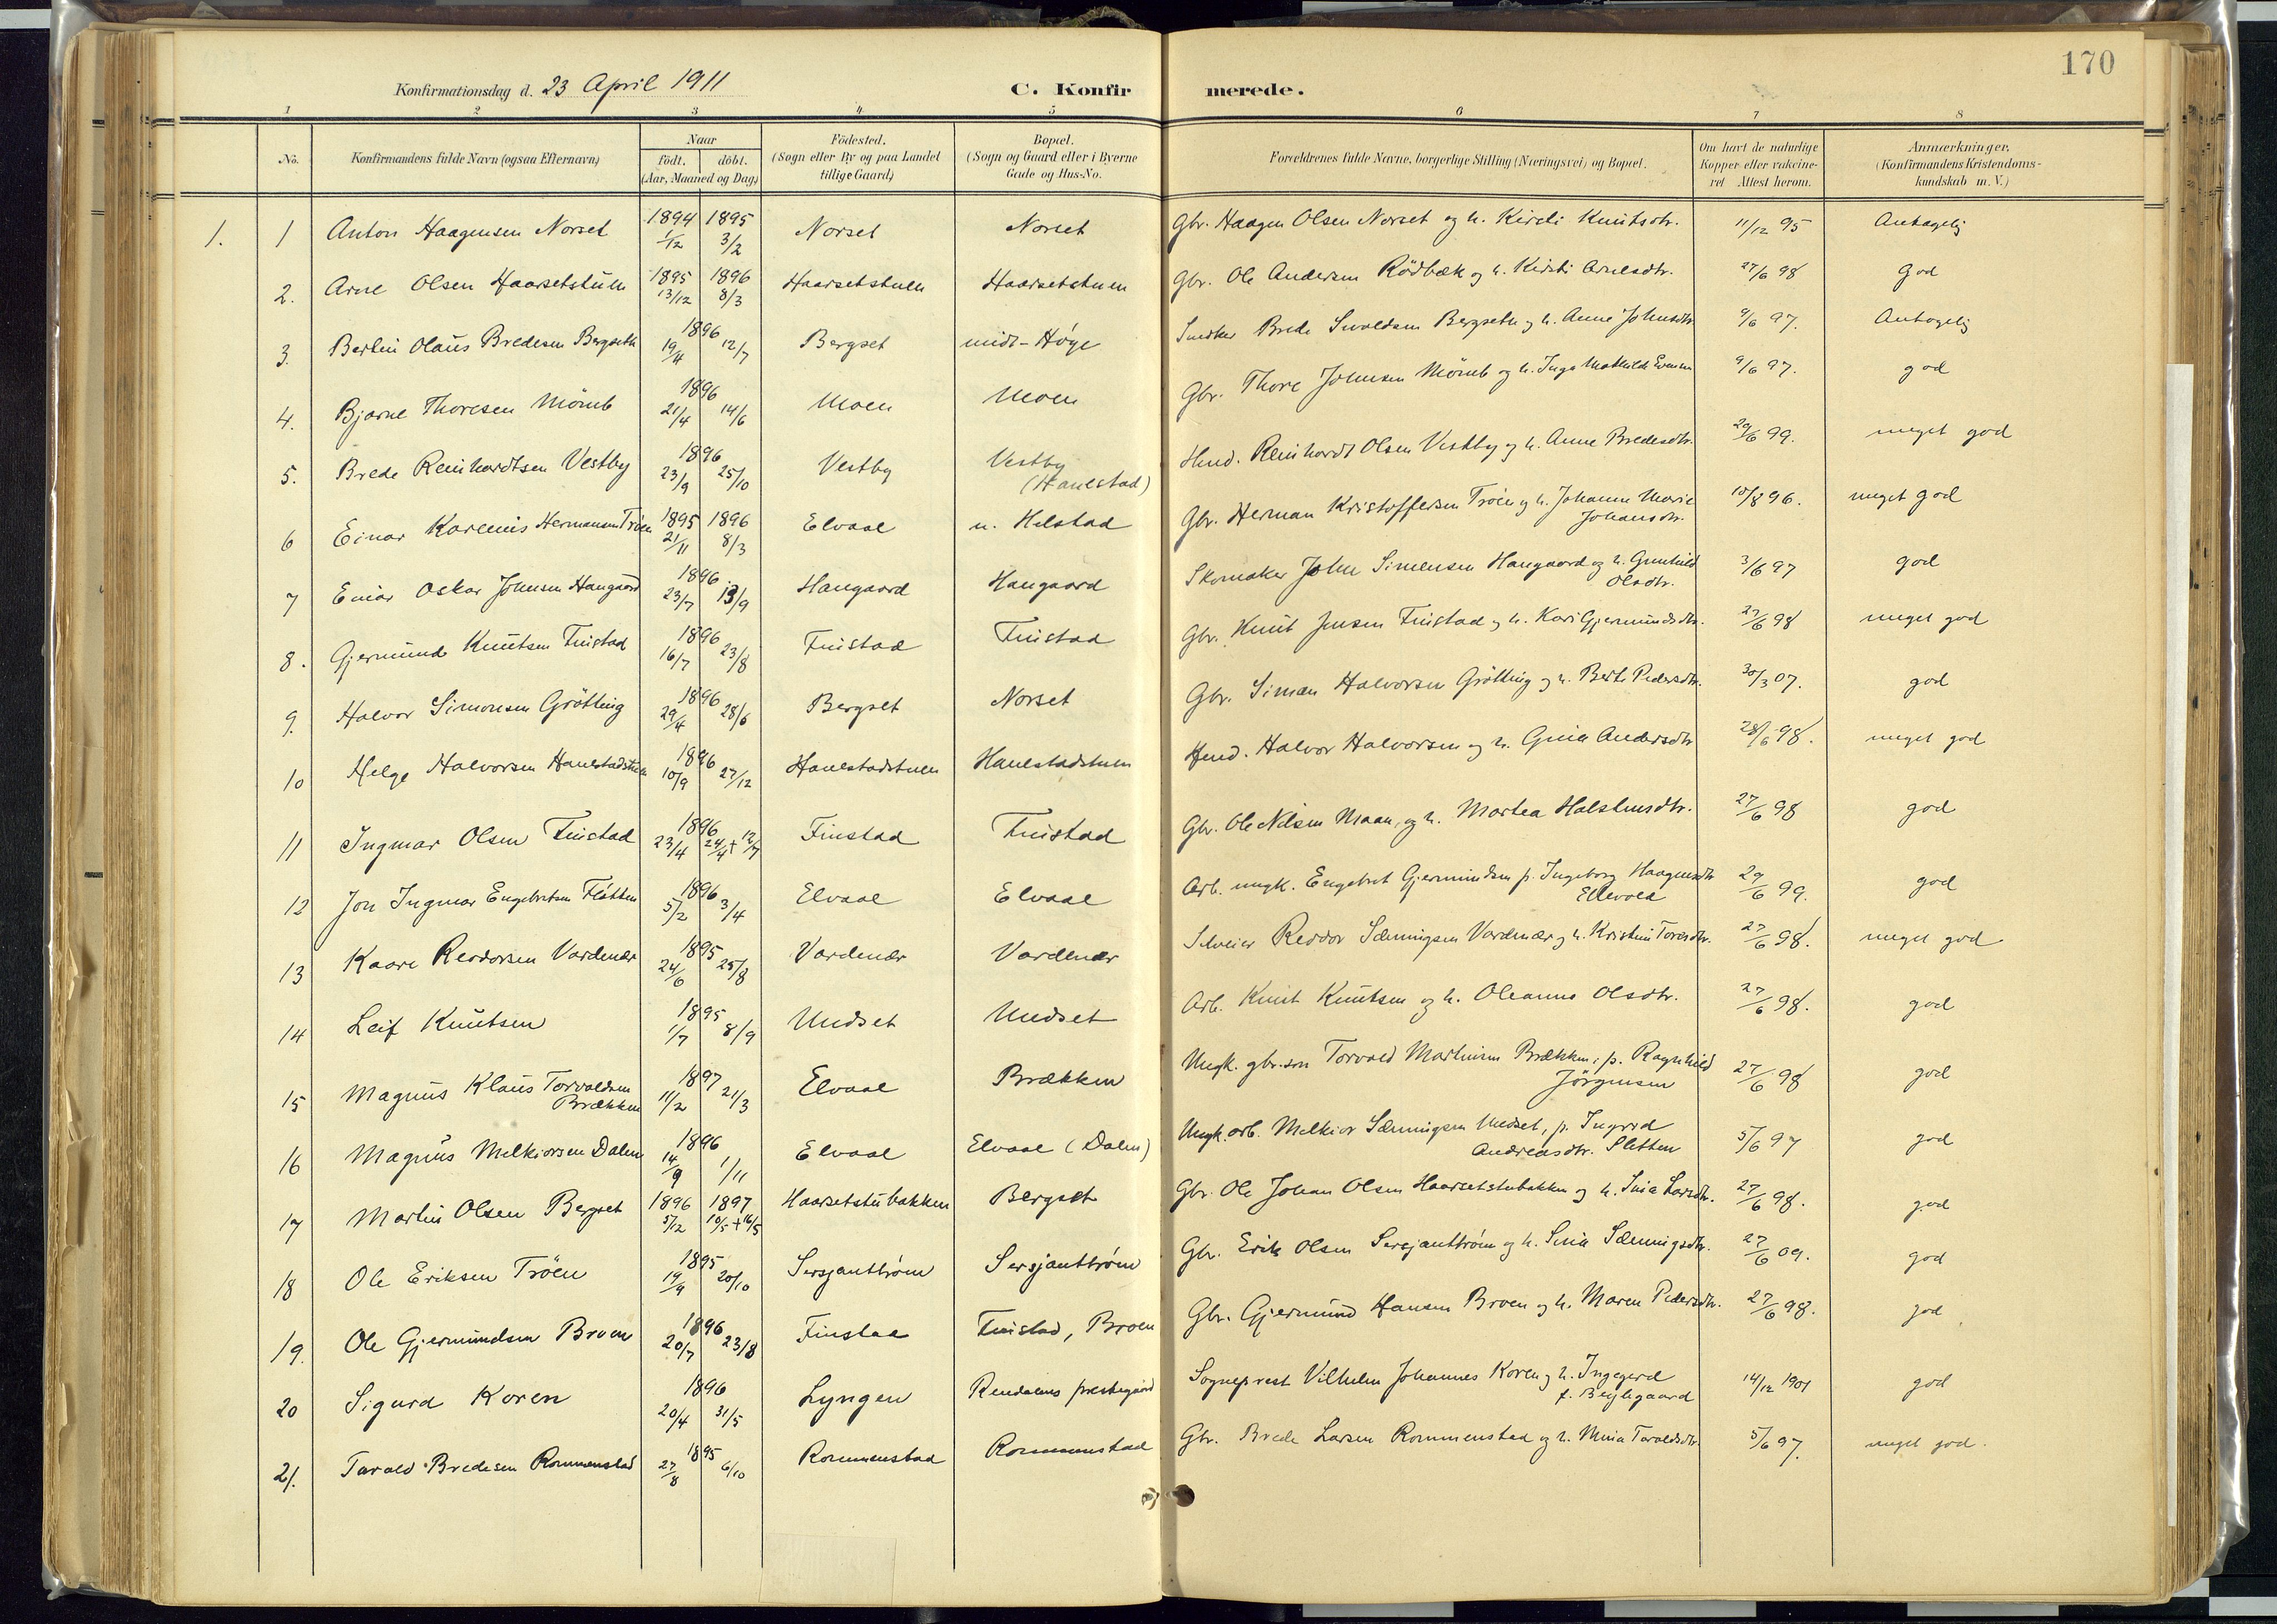 170
Konfirmationsdag d. 23 April 1911 C. Konfirmerede.
1 2 3 4 5 6 7 8
No. Konfirmandens fulde Navn (ogsaa Efternavn) Naar födt. döbt. (Aar, Maaned og Dag) Födested. (Sogn eller By og paa Landet tillige Gaard) Bopæl. (Sogn og Gaard eller i Byerne Gade og Hus-No. Forældrenes fulde Navne, borgerlige Stilling (Næringsvei) og Bopæl. Om havt de naturlige Kopper eller vakcineret Attest herom. Anmærkninger. (Konfirmandens Kristendomskundskab m. V.)
1. 1 Anton Haagensen Norset 1894 1/12 1895 3/2 Norset Norset Gbr. Haagen Olsen Norset og h. Kirsti Knutsdtr. 11/12 95 Antagelig
2. Arne Olsen Haarsetstuen 1895 13/12 1896 8/3 Haarsetstuen Haarsetstuen Gbr. Ole Andersen Rödbæk og h. Kirsti Arnesdtr. 27/6 98 God
3. Bertin Olaus Bredesen Bergseth 1896 19/4 12/7 Bergset midt-Höye Brede Bergseth og h. Anne Johnsdtr 9/6 97. Antagelig
4. Bjarne Thoresen Mömb 1896 21/4 14/6 Moen Moen Gbr. Thore Johnsen Mömb og h. Inga Mathilde Evensen 9/6 97. god
5. Brede Reinhardtsen Vestby 1896 23/9 25/10 Vestby Vestby (Hanestad) Hmd. Reinhardt Olsen Vestby og h. Anne Bredesdtr. 29/6 99. meget god
6 Einar Karenius Hermansen Tröen 1895 21/11 1896 8/3 Elvaal n. Helstad Gbr. Herman Kristoffersen Tröen og h. Johanne Marie Johansdtr. 10/8 96. meget god
7 Einar Oskar Johnsen Haugaard 1896 23/7 13/9 Haugaard Haugaard Skomaker John Simensen Haugaard og h. Gunhild Olsdtr. 3/6 97 god
8. Gjermund Knutsen Finstad 1896 16/7 23/8 Finstad Finstad Gbr. Knut Jensen Finstad og h. Kari Gjermundsdtr. 27/6 98 meget god
9. Halvor Simonsen Grötting 1896 29/4 28/6 Bergset Norset Gbr. Siman Halvorsen Grötting og h. Berte Pedersdtr. 30/3 07. god
10 Helge Halvorsen Hanestadstuen 1896 10/9 27/12 Hanestadstuen Hanestadstuen Hmd. Halvor Halvorsen og h. Gina Andersdtr 28/6 98. meget god
11 Ingmar Olsen Finstad 1896 23/4 24/4 + 12/7 Finstad Finstad Gbr. Ole Nilsen Maan, og h. Martea Halstensdtr. 27/6 98 god
12 Jon Ingmar Engebretsen Flötten 1896 5/2 3/4 Elvaal Elvaal Arb. ungk. Engebret Gjermundsen p. Ingeborg Haagensdtr Ellevold 29/6 99. god
13 Kaare Reodorsen Vardenær 1895 24/6 25/8 Vardenær Vardenær Reodor Sæmingsen Vardenær og h. Kristine Toresdtr. 27/6 98. meget god
14 Leif Knutsen 1895 1/7 8/9 Undset Undset Arb. Knut Knutsen og h. Oleanna Olsdtr. 27/6 98. god
15 Magnus Klaus Torvaldsen Brækken 1897 11/2 21/3 Elvaal Brækken Ungk. gbr.søn Torvald Martinsen Brækken, p. Ragnhild Jörgensen 27/6 98 god
16 Magnus Melkiorsen Dalen 1896 14/9 1/11 Elvaal Elvaal (Dalen) Ungk. arb. Melkior Sæmingsen Undset, p. Ingrid Andreasdtr. Sletten 5/6 97 god
17 Martin Olsen Bergset 1896 5/12 1897 10/5 + 16/5 Haarsetstubakken Bergset Gbr. Ole Johan Olsen Haarsetstubakken og h. Sina Larsdtr. 27/6 98. god
18 Ole Eriksen Tröen 1895 19/9 20/10 Sersjanttröen Sersjanttröen Gbr. Erik Olsen Sersjanttröen og h. Sina Sæmingsdtr. 27/6 09. god
19. Ole Gjermundsen Broen 1896 20/7 23/8 Finstad Finstad, Broen Gbr. Gjermund Hansen Broen og h. Maren Pedersdtr. 27/6 98. god
20 Sigurd Koren 1896 20/4 31/5 Lyngen Rendalens prestegaard Sogneprest Vilhelm Johannes Koren og h. Ingegerd f. Beylegaard 14/12 1901 god
21. Tarald Bredesen Rommenstad 1895 27/8 6/10 Rommenstad Rommenstad Gbr. Brede Larsen Rommenstad og h. Mina Taraldsdtr. 5/6 97. meget god.